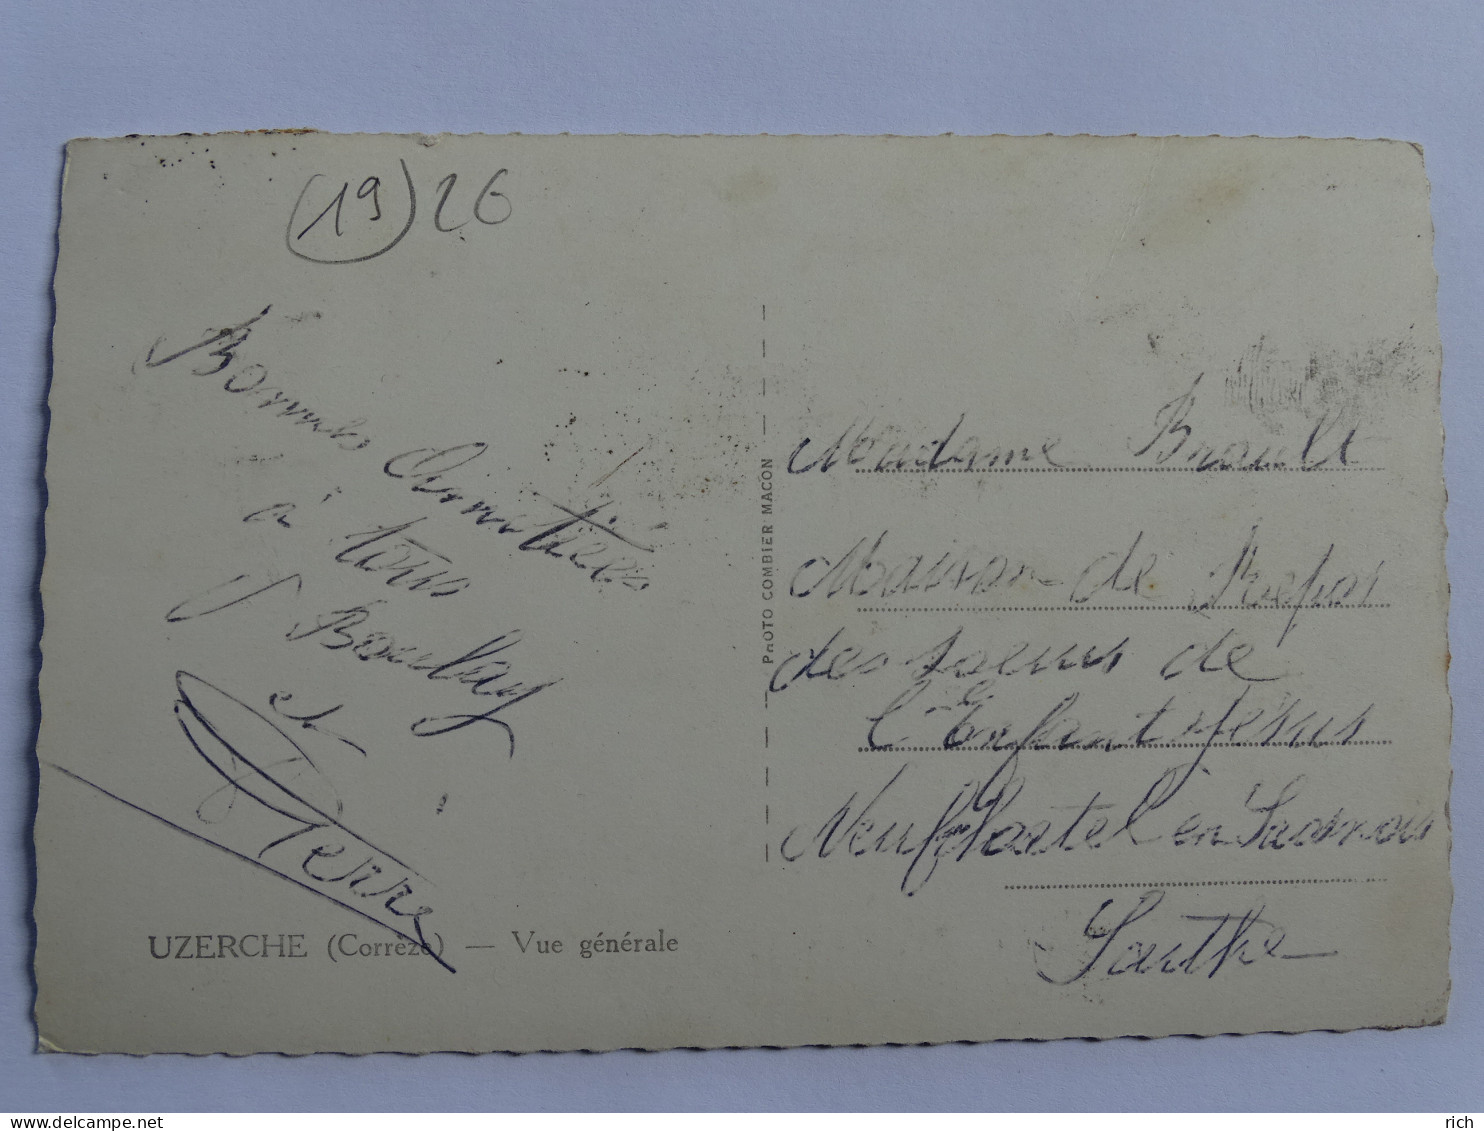 (19) 26
Bonnes Amitiées
à tous
J Boulay
et
Pierre
UZERCHE (Corrèze) — Vue générale
PHOTO COMBIER MACON
Madame Brault
Maison de Repos
des soeurs de
l'Enfant Jésus
Neufchatel en Saosnois
Sarthe
delcampe.net
rich